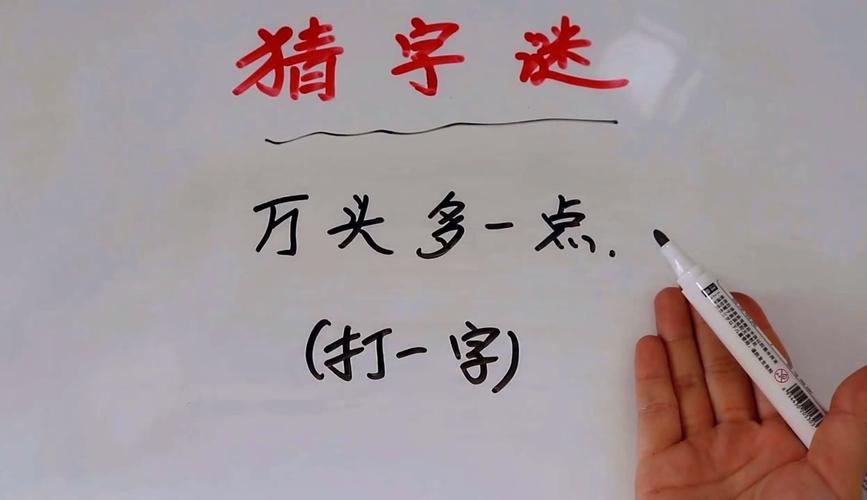 猜字谜
万头多一点.
(打一字)